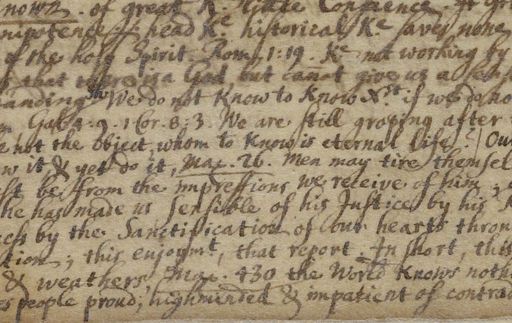 of great K. Guide Conscience. It
nipotence & head Ke historical Ke saves none
of the holy Spirit. Rom. 1:19. Ke not working by
that there is a God but canot give us a
anding We do not Know to Know Xst if we do no
Gal. 4. 9. 1 Cor. 8. 3. We are still groping after
not the object, whom to Know is eternal life. Ou
w it & yet do it, Mac. 26. Men may tire themsel
st be from the impressions we receive of him,
he has made us sensible of his Justice by his
cess by the Sanctification of our hearts throu
tion; this enjoymt, that report. In short, this
& weathers, Mac. 430 the World Knows noth
es people proud; highminded & impatient of contrad